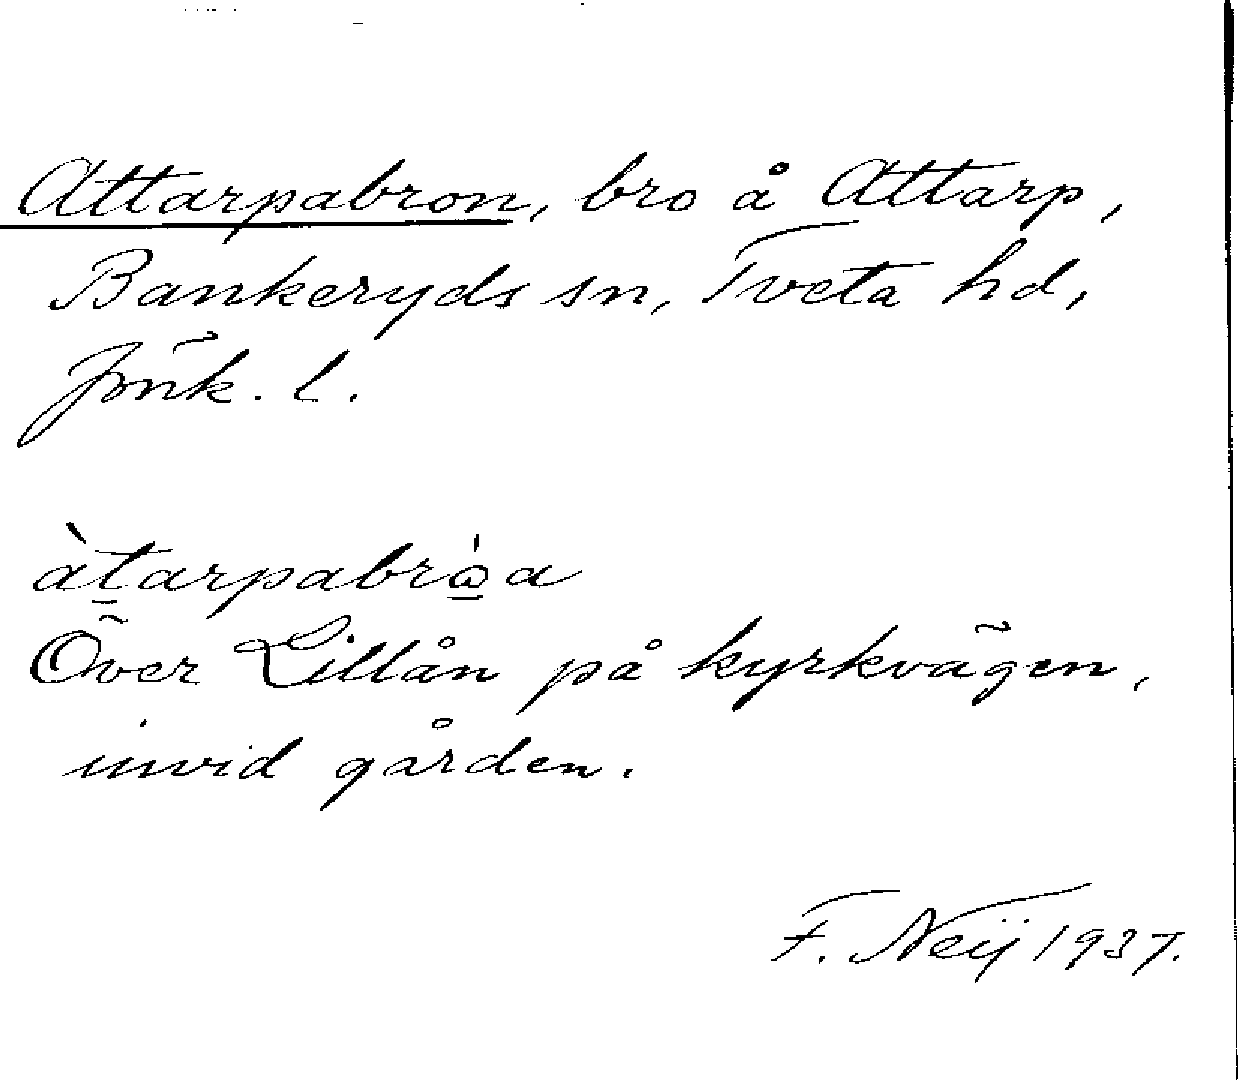 Attarpabron, bro å Attarp,
Bankeryds sn, Tveta hd,
Jönk. l.
àt̠arpabrὼ̠a
Över Lillån på kyrkvägen,
invid gården.
F. Neij 1937.